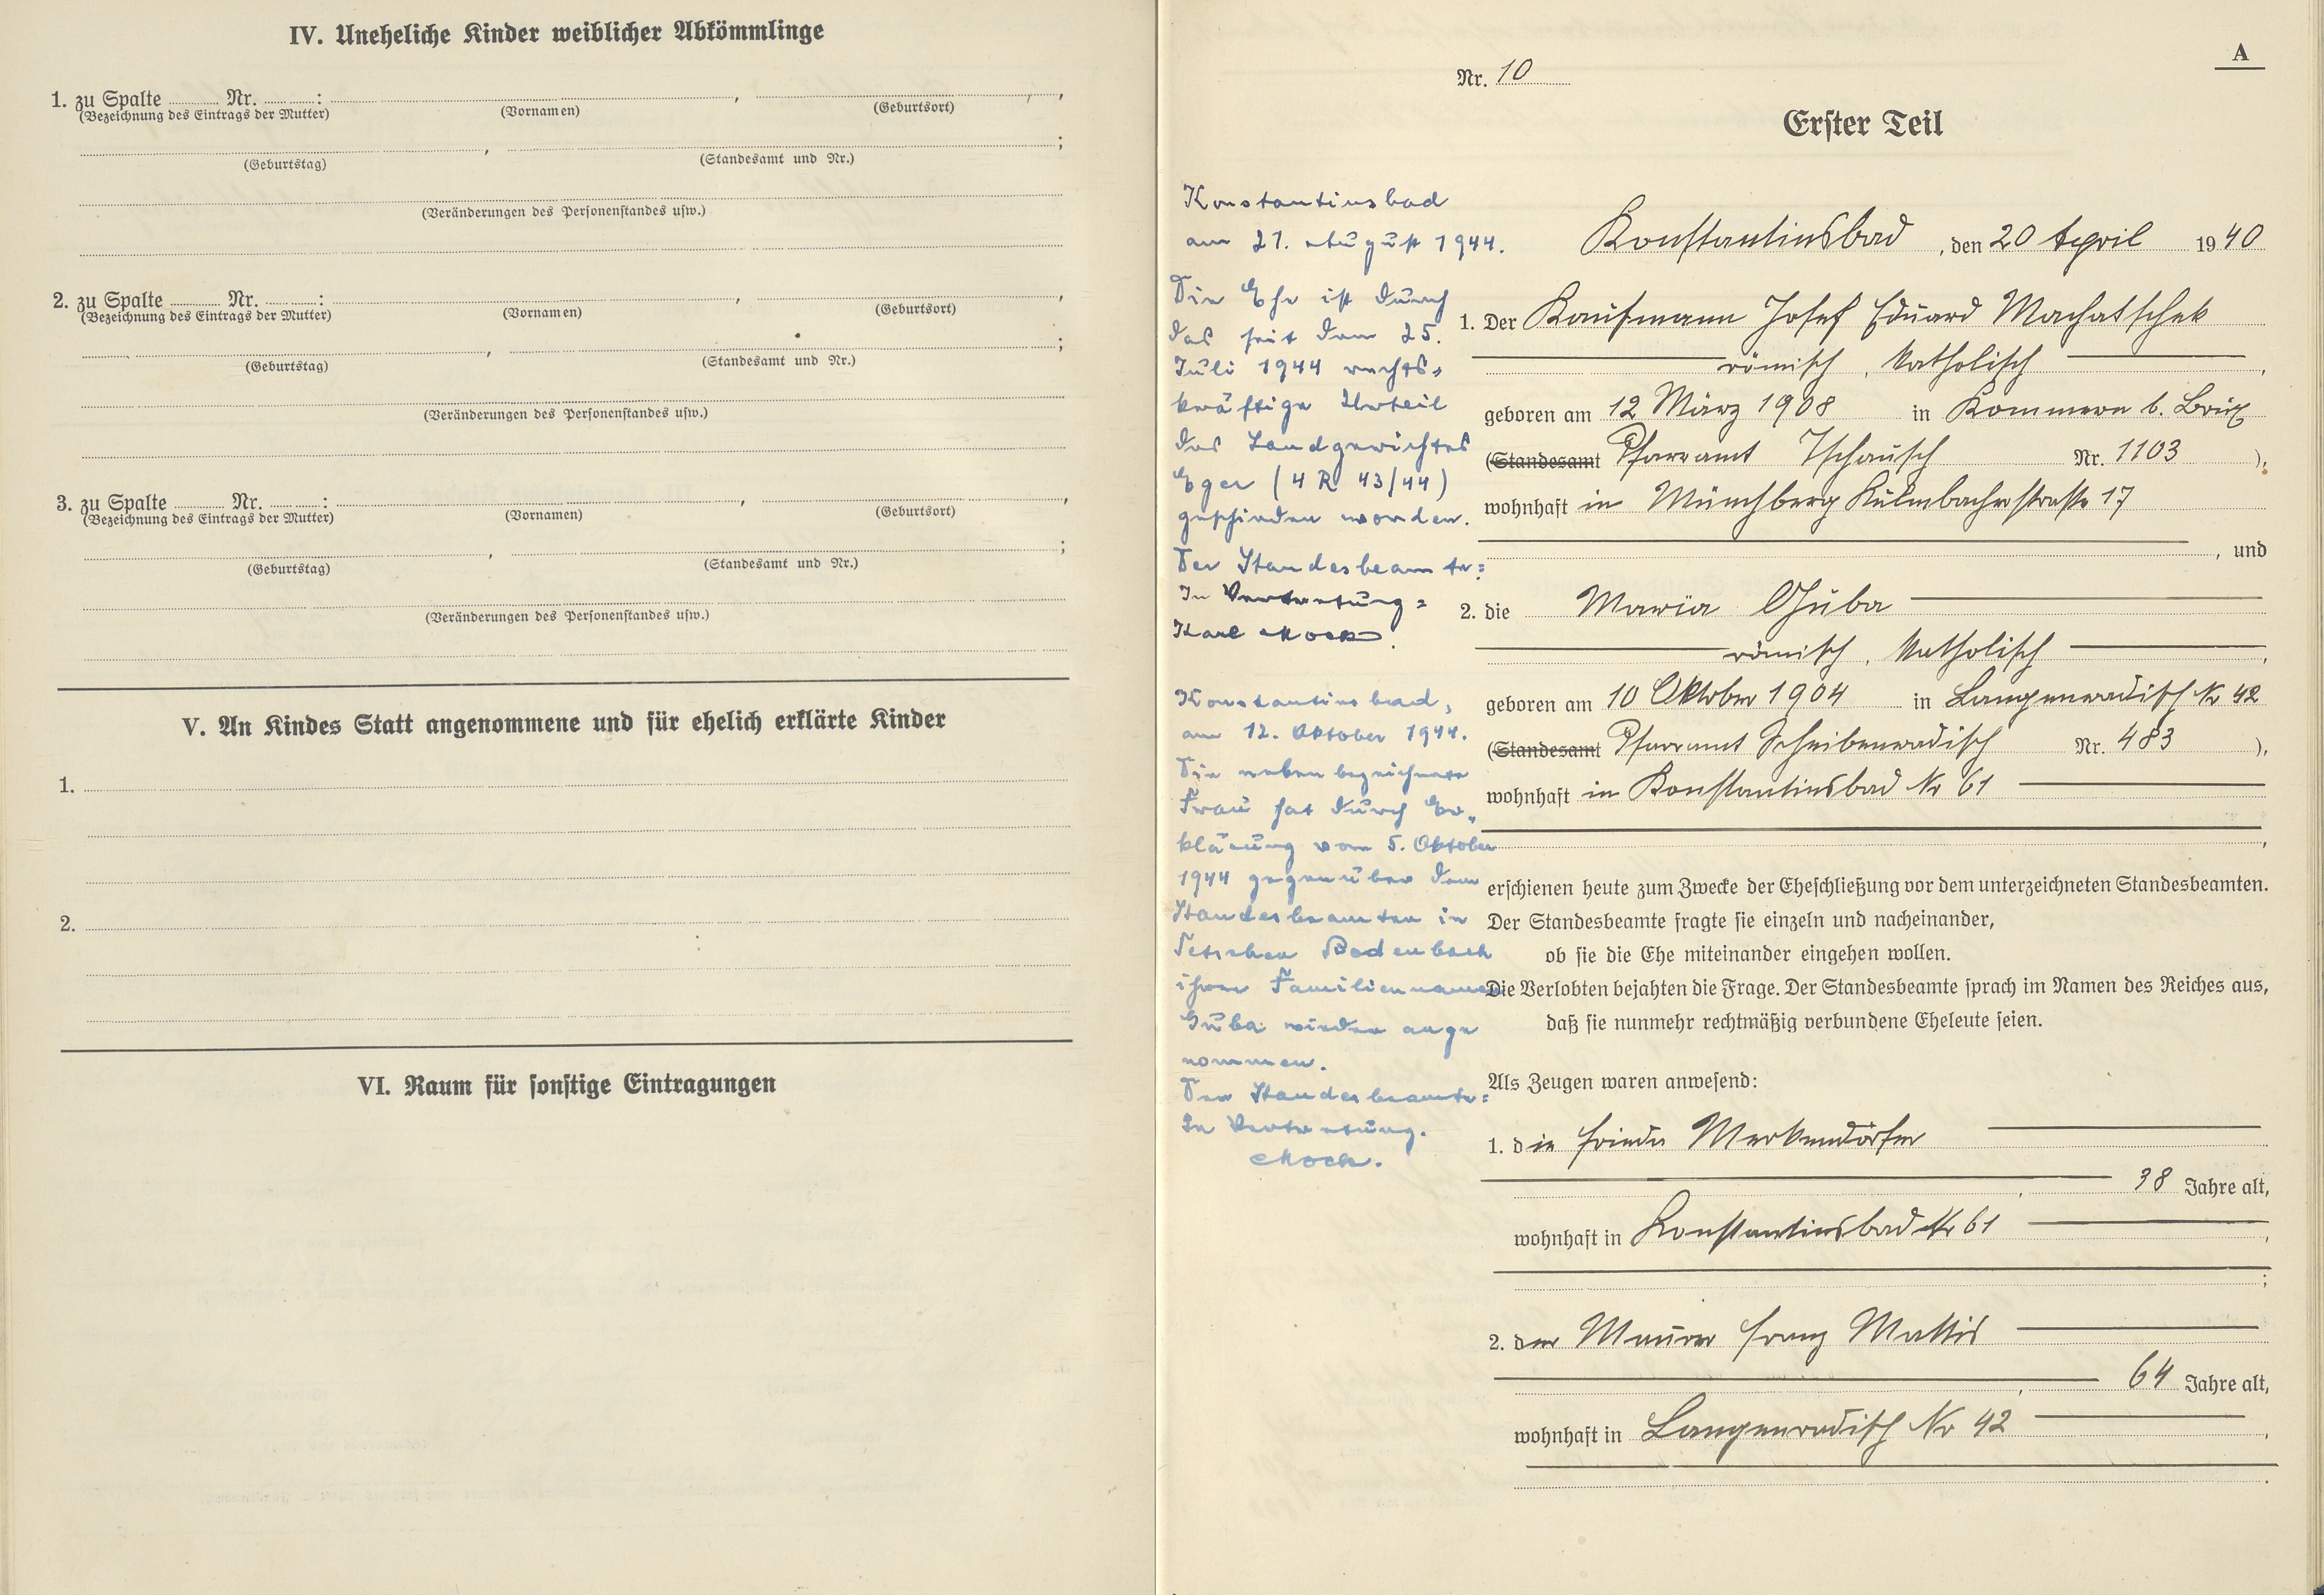 IV. Uneheliche Kinder weiblicher Abkömmlinge
1. zu Spalte Nr. : , ,
(Bezeichnung des Eintrags der Mutter) (Vornamen) (Geburtsort)
, ;
(Geburtstag) (Standesamt und Nr.)
(Veränderungen des Personenstandes usw.)
2. zu Spalte Nr. : , ,
(Bezeichnung des Eintrags der Mutter) (Vornamen) (Geburtsort)
, ;
(Geburtstag) (Standesamt und Nr.)
(Veränderungen des Personenstandes usw.)
3. zu Spalte Nr. : , ,
(Bezeichnung des Eintrags der Mutter) (Vornamen) (Geburtsort)
, ;
(Geburtstag) (Standesamt und Nr.)
(Veränderungen des Personenstandes usw.)
V. An Kindes Statt angenommene und für ehelich erklärte Kinder
1.
2.
VI. Raum für sonstige Eintragungen
A
Nr. 10
Erster Teil
Konstantinsbad
am 21. August 1944.
Die Ehe ist durch
das seit dem 25.
Juli 1944 rechts=
kräftige Urteil
des Landgerichtes
Eger (4 R 43/44)
geschieden worden.
Der Standesbeamte:
In Vertretung:
Karl Mock.
Konstantinsbad,
am 12. Oktober 1944.
Die nebenbezeichnete
Frau hat durch Er=
klärung vom 5. Oktober
1944 gegenüber dem
Standesbeamten in
Tetschen Bodenbach
ihren Familiennamen
Guba wieder ange
nommen.
Der Standesbeamte:
In Vertretung.
Mock.
Konstantinsbad, den 20 April 1940
1. Der Kaufmann Josef Eduard Machatschek
römisch, katholisch,
geboren am 12 März 1908 in Kommern b. Brüx
(Standesamt Pfarramt Tschausch Nr. 1103 ),
wohnhaft in Münchberg Kulmbacherstrasse 17
, und
2. die Maria Guba
römisch, katholisch,
geboren am 10 Oktober 1904 in Langenradisch Nr 42
(Standesamt Pfarramt Scheibenradisch Nr. 483 ),
wohnhaft in Konstantinsbad Nr 61
,
erschienen heute zum Zwecke der Eheschließung vor dem unterzeichneten Standesbeamten.
Der Standesbeamte fragte sie einzeln und nacheinander,
ob sie die Ehe miteinander eingehen wollen.
Die Verlobten bejahten die Frage. Der Standesbeamte sprach im Namen des Reiches aus,
daß sie nunmehr rechtmäßig verbundene Eheleute seien.
Als Zeugen waren anwesend:
1. die Frieda Merkendörfer
, 38 Jahre alt,
wohnhaft in Konstantinsbad Nr 61,
;
2. der Maurer Franz Mattis
, 64 Jahre alt,
wohnhaft in Langenradisch Nr 42,
.